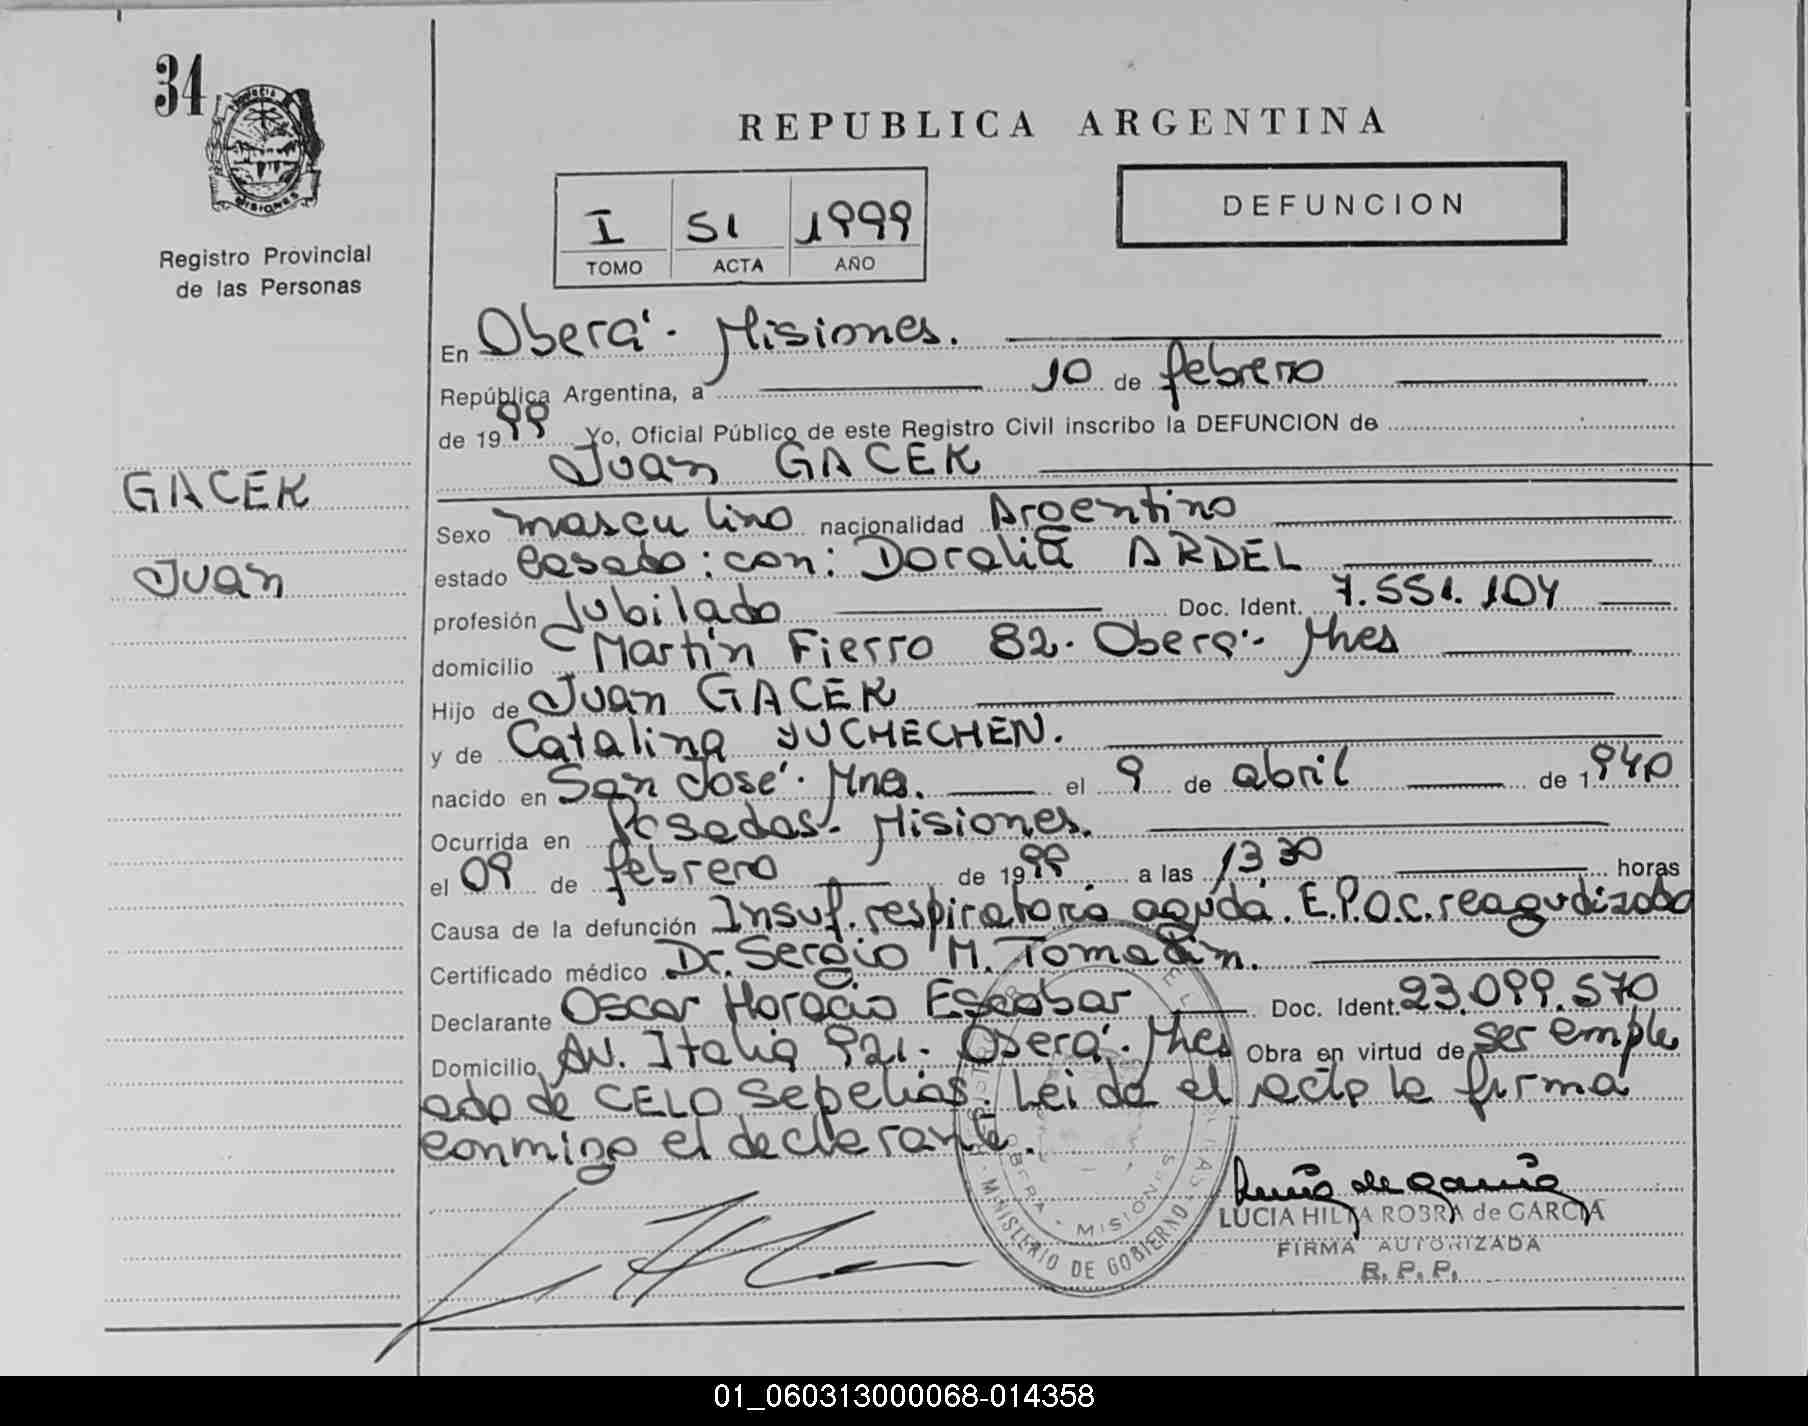 34
PROVINCIA
MISIONES
Registro Provincial
de las Personas
REPUBLICA ARGENTINA
I 51 1999
TOMO ACTA AÑO
DEFUNCION
En Oberá - Misiones.
República Argentina, a 10 de febrero
de 1999 Yo, Oficial Público de este Registro Civil inscribo la DEFUNCION de
Juan GACEK
GACEK
Juan
Sexo masculino nacionalidad Argentino
estado Casado: con: Doralia ARDEL
profesión Jubilado Doc. Ident. 7.551.104
domicilio Martín Fierro 82. Oberá - Mnes
Hijo de Juan GACEK
y de Catalina YUCHECHEN.
nacido en San José. Mnes. el 9 de abril de 1940
Ocurrida en Posadas - Misiones.
el 09 de febrero de 1999 a las 13 30 horas
Causa de la defunción Insuf. respiratoria aguda. E.P.O.C. reagudizada
Certificado médico Dr. Sergio M.
Declarante Oscar Horacio Escobar Doc. Ident. 23.099.570
Domicilio Av. Italia 921. Oberá. Mnes Obra en virtud de ser emple
ado de CELO Sepelios. Leida el acta la firma
conmigo el declarante.
OBERA - MISIONES
MINISTERIO DE GOBIERNO
LUCIA HILDA ROBRA de GARCIA
FIRMA AUTORIZADA
R.P.P.
01_060313000068-014358